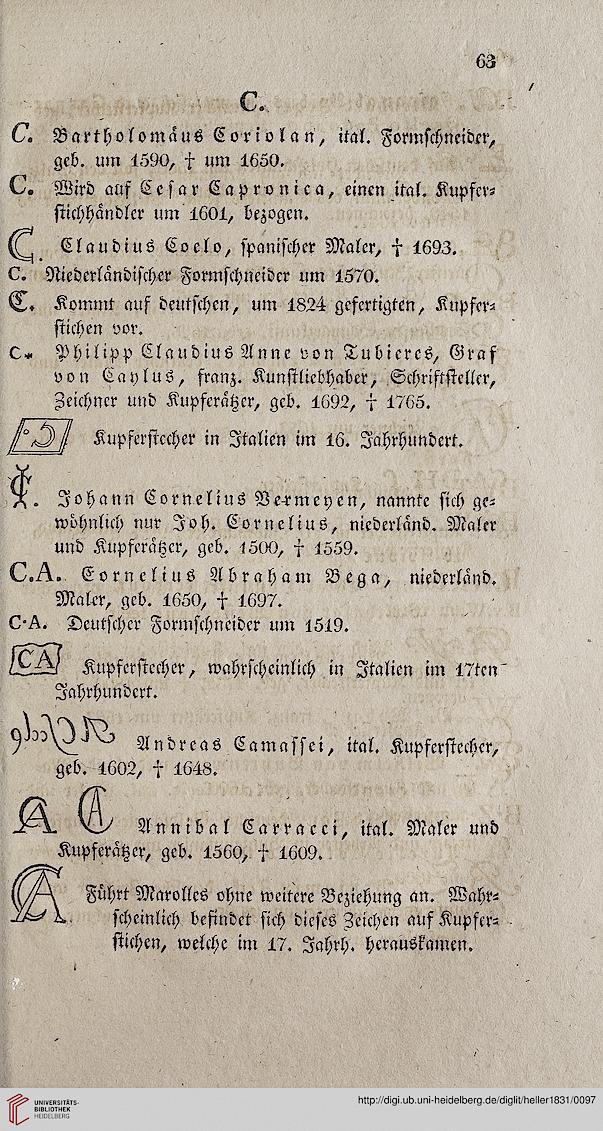 63
C.
C. Bartholomäus Coriolan, ital. Formschneider,
geb. um 1590, † um 1650.
C. Wird auf Cesar Capronica, einen ital. Kupfer⸗
stichhändler um 1601, bezogen.
C. Claudius Coelo, spanischer Maler, † 1693.
C. Niederländischer Formschneider um 1570.
C. Kommt auf deutschen, um 1824 gefertigten, Kupfer⸗
stichen vor.
C. Philipp Claudius Anne von Tubieres, Graf
von Caylus, franz. Kunstliebhaber, Schriftsteller,
Zeichner und Kupferätzer, geb. 1692, † 1765.
C Kupferstecher in Italien im 16. Jahrhundert.
Johann Cornelius Vermeyen, nannte sich ge⸗
wöhnlich nur Joh. Cornelius, niederländ. Maler
und Kupferätzer, geb. 1500, † 1559.
C.A. Cornelius Abraham Bega, niederländ.
Maler, geb. 1650, † 1697.
C·A. Deutscher Formschneider um 1519.
CA Kupferstecher, wahrscheinlich in Italien im 17ten
Jahrhundert.
Andreas Camassei, ital. Kupferstecher,
geb. 1602, † 1648.
CA CA Annibal Carracci, ital. Maler und
Kupferätzer, geb. 1560, † 1609.
CA Führt Marolles ohne weitere Beziehung an. Wahr⸗
scheinlich befindet sich dieses Zeichen auf Kupfer⸗
stichen, welche im 17. Jahrh. herauskamen.
UNIVERSITÄTS-
BIBLIOTHEK
HEIDELBERG
http://digi.ub.uni-heidelberg.de/diglit/heller1831/0097